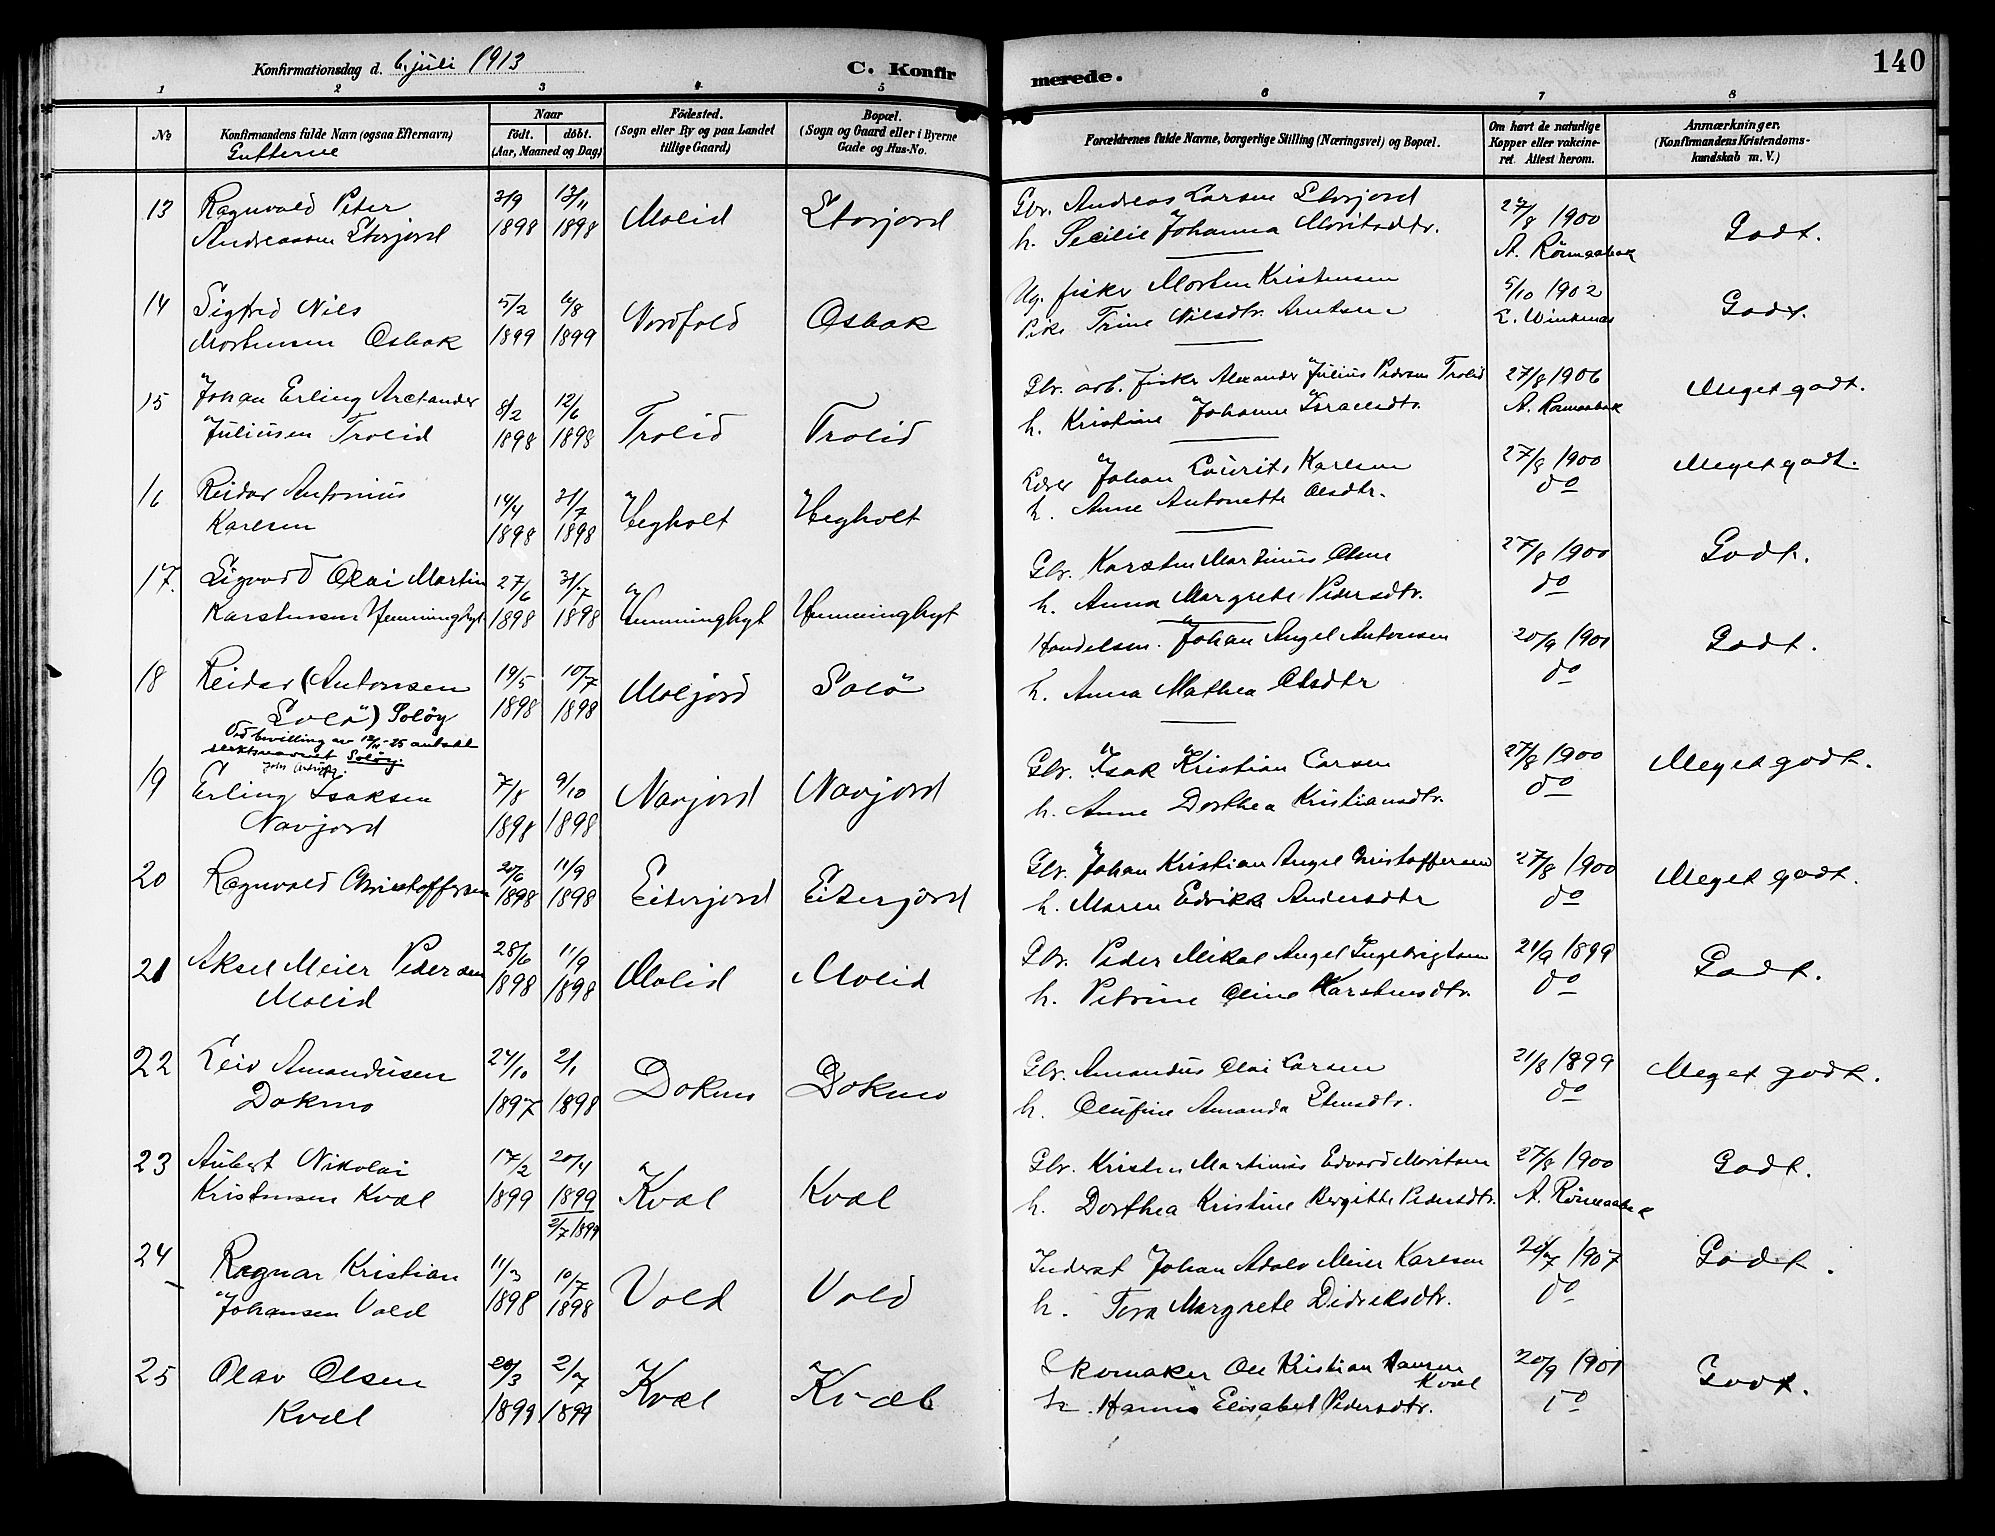 Konfirmationsdag d. 6. juli 1913
C. Konfir
merede.
140
1 2 3 4 5 6 7 8
No
Konfirmandens fulde Navn (ogsaa Efternavn)
Gutterne
Naar
födt. döbt.
(Aar, Maaned og Dag)
Födested.
(Sogn eller By og paa Landet
tillige Gaard)
Bopæl.
(Sogn og Gaard eller i Byerne
Gade og Hus-No.
Forældrenes fulde Navne, borgerlige Stilling (Næringsvei) og Bopæl.
Om havt de naturlige
Kopper eller vakcine-
ret. Attest herom.
Anmærkninger.
(Konfirmandens Kristendoms-
kundskab m. V.)
13 Ragnvald Peter 3/9 13/11 Molid Storjord Gbr. Andreas Larsen Storjord 27/8 1900 Godt.
Andreassen Storjord 1898 1898 h. Secilie Johanna Moritsdtr. A. Römaabak
14 Sigfred Nils 5/2 6/8 Nordfold Osbak Ug. fisker Morten Kristensen 5/10 1902 Godt.
Mortensen Osbak 1899 1899 Pike Trine Nilsdtr. Arntsen
15 Johan Erling Arctander 8/2 12/6 Trolid Trolid Gbr. arb. Fisker Alexander Julius Pedersen Trolid 27/8 1906 Meget godt.
Juliusen Trolid 1898 1898 h. Kristine Johanne Israelsdtr. A. Römaabak
16 Reidar Antonius 14/4 31/7 Hegholt Hegholt Johan Laurits Karlsen 27/8 1900 Meget godt.
Karlsen 1898 1898 h. Anne Antonette Olsdtr. do
17. Sigvard Olai Martin 27/6 31/7 Henninghyt Henninghyt Gbr. Karsten Martinus Olsen 27/8 1900 Godt.
Karstensen Henninghyt 1898 1898 h. Anna Margrete Pedersdtr. do
18 Reidar (Antonsen 19/5 10/7 Moljord Solö Handelsm. Johan Angel Antonsen 20/9 1900 Godt.
Solö) Soløy 1898 1898 h. Anna Mathea Olsdtr do
Ved bevilling av 12/11-25 antatt
slektsnavnet Soløy.
19 Erling Isaksen 7/8 9/10 Navjord Navjord Gbr. Isak Kristian Larsen 27/8 1900 Meget godt.
Navjord 1898 1898 h. Anne Dorthea Kristiansdtr. do
20 Ragnvald Christoffersen 20/6 11/9 Eiterjord Eiterjord Gbr. Johan Kristian Angel Christoffersen 27/8 1900 Meget godt.
1898 1898 h. Maren Edvikke Andersdtr do
21 Aksel Meier Pedersen 28/6 11/9 Molid Molid Gbr. Peder Mikal Angel Ingebrigtsen 21/9 1899 Godt.
Molid 1898 1898 h. Petrine Oline Karstensdtr. do
22 Leiv Amandusen 24/10 2/1 Dokmo Dokmo Gbr. Amandus Olai Larsen 21/8 1899 Meget godt.
Dokmo 1897 1898 h. Olufine Amanda Stensdtr. do
23 Aubert Nikolai 17/2 20/4 Kvæl Kvæl Gbr. Kristen Martinus Edvard Moritsen 27/8 1900 Godt.
Kristensen Kvæl 1899 1899 h. Dorthea Kristine Bergitte Pedersdtr. A. Römaabak
2/7 1899
24 Ragnar Kristian 11/3 10/7 Vold Vold Inderst Johan Adolv Meier Karlsen 1907 Godt.
Johansen Vold 1898 1898 h. Tora Margrete Didriksdtr. do
25 Olav Olsen 20/3 2/7 Kvæl Kvæl Skomaker Ole Kristian Hansen 20/9 1901 Godt.
Kvæl 1899 1899 Kvæl
h. Hanna Elisabet Pedersdtr. do